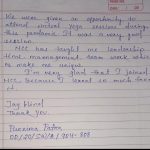 We were given an opportunity to
attend virtual Yoga sessions during
this pandemic. It was a very good
session.
NCC has taught me leadership
time management, team work which
to make me unique.
I'm very glad that I joined
NCC, because I learnt so much from
it
Jay Hind
Thank you.
Poonama